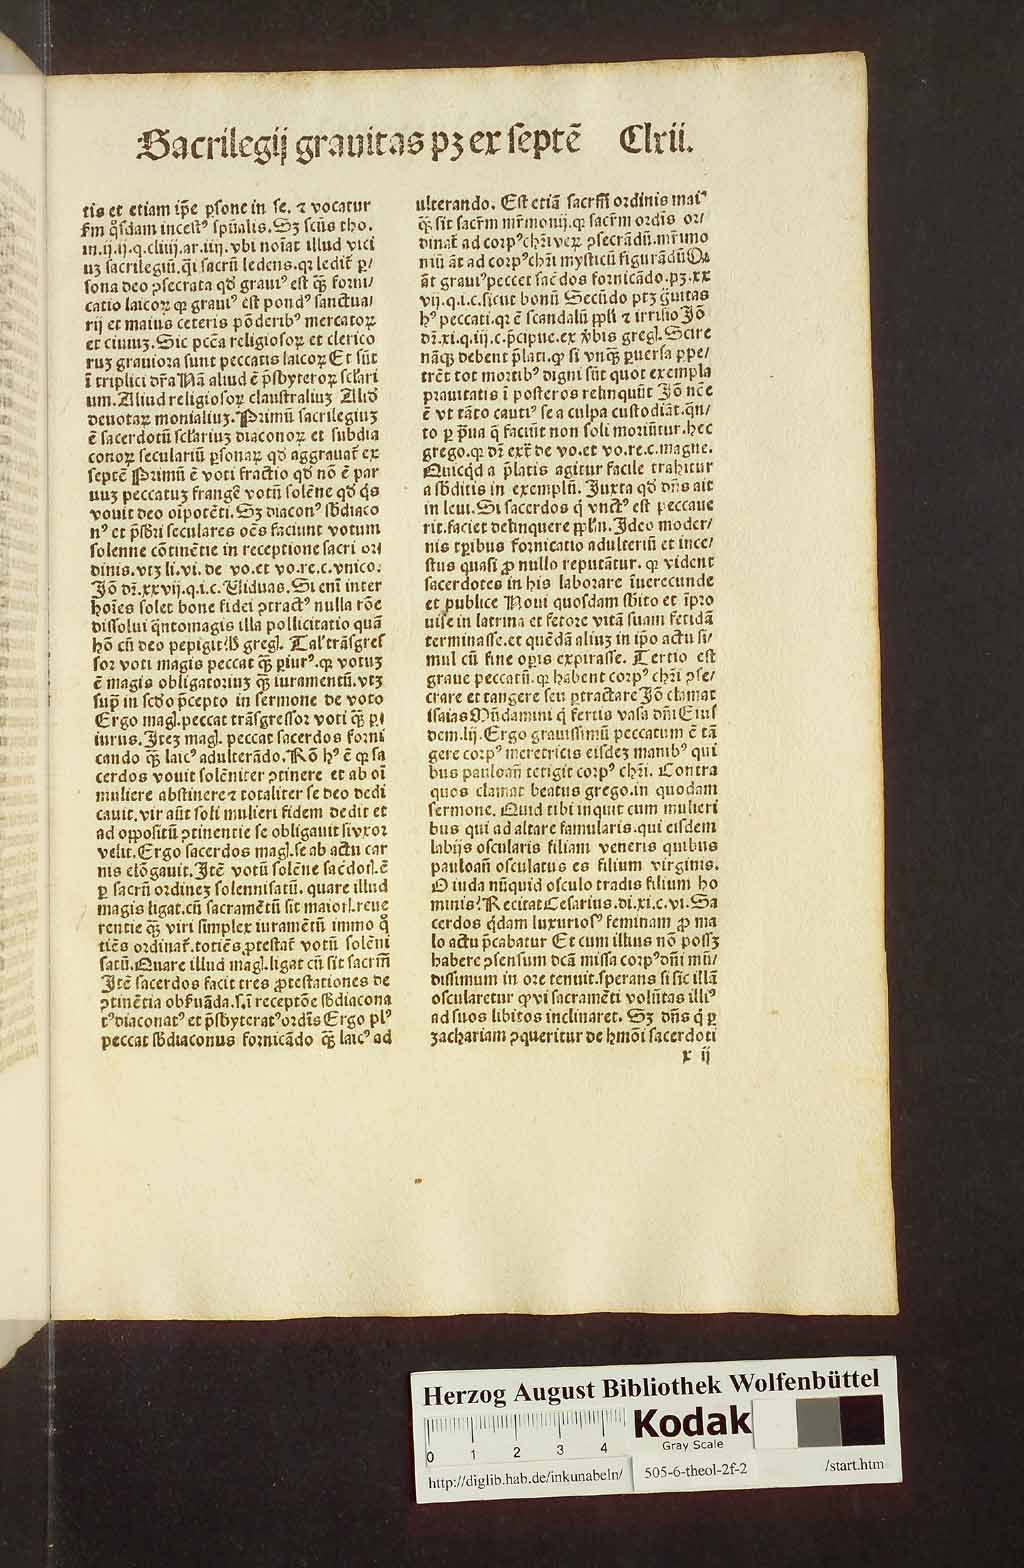 Sacrilegij grauitas pꝫ ex septē Clxii.
tis et etiam ip̄e ꝑsone in se. ⁊ vocatur
ẜm qͦsdam incestꝰ spūalis. Sꝫ scūs tho.
in.ij.ij.q.cliiij.ar.iiij. vbi noīat illud vici
uꝫ sacrilegiū. q̄i sacrū ledens. qꝛ ledit̄ ꝑ/
sona deo ꝯsecrata qd̄ grauiꝰ est qᷓꝫ forni/
catio laicoꝝ qꝛ grauiꝰ est pondꝰ sanctua/
rij et maius ceteris pōderibꝰ mercatoꝝ
et ciuiuꝫ. Sic pccā religiosoꝝ et clerico
ruꝫ grauiora sunt peccatis laicoꝝ Et sūt
ī triplici dr̄a Nā aliud ē p̄sbyteroꝝ sclari
um. Aliud religiosoꝝ claustraliuꝫ Aliđ
deuotaꝝ monialiuꝫ. Primū sacrilegiuꝫ
ē sacerdotū sclariuꝫ diaconoꝝ et subdia
conoꝝ seculariū ꝑsonaꝝ qd̄ aggrauat̄ ex
septē Primū ē voti fractio qd̄ nō ē par
uuꝫ peccatuꝫ frangē votū solēne qd̄ q̇s
vouit deo oīpotēti. Sꝫ diaconꝰ sb̄diaco
nꝰ et p̄sb̄ri seculares oēs faciunt votum
solenne cōtinētie in receptione sacri ori
dinis. vtꝫ li.vi. de vo.et vo.re.c.vnico.
Jō dr̄.xxvij.q.i.c. Uiduas. Si enī inter
hoīes solet bone fidei ꝯtractꝰ nulla rōe
dissolui q̄ntomagis illa pollicitatio quā
hō cū deo pepigit? đ gregꝉ. Talꝰ trāsgreſ
sor voti magis peccat qᷓꝫ ꝑiurꝰ. qꝛ votuꝫ
ē magis obligatoriuꝫ qᷓꝫ iuramentū. vtꝫ
supͣ in scd̄o p̄cepto in sermone de voto
Ergo magꝉ. peccat trāsgressor voti qᷓꝫ ꝑi
iurus. Iteꝫ magꝉ. peccat sacerdos forni
cando qᷓꝫ laicꝰ adulterādo. Rō hꝰ ē qꝛ sa
cerdos vouit solēniter ꝯtinere et ab oī
muliere abstinere ⁊ totaliter se deo dedi
cauit. vir aūt soli mulieri fidem dedit et
ad oppositū ꝯtinentie se obligauit si vxor
velit. Ergo sacerdos magꝉ. se ab actu car
nis elōgauit. Itē votū solēne sac̄dotꝉ. ē
ꝑ sacrū ordineꝫ solennisatū. quare illud
magis ligat. cū sacramētū sit maiorꝉ. reue
rentie qᷓꝫ viri simplex iuramētū immo qͦ
tiēs ordinat̄. totiēs ꝓtestat̄ votū solēni
satū. Quare illud magꝉ. ligat cū sit sacrm̄
Itē sacerdos facit tres ꝓtestationes de
ꝯtinētia obẜuāda. s. ī receptōe sb̄diacona
tꝰ diaconatꝰ et p̄sbyteratꝰ ordīs Ergo plꝰ
peccat sb̄diaconus fornicādo qᷓꝫ laicꝰ ad
ulterando. Est etiā sacrm̄ ordinis maiꝰ
qᷓꝫ sit sacr̄m mr̄monij. qꝛ sacr̄m ordīs or/
dinat̄ ad corpꝰ chr̄i veꝝ ꝯsecrādū. mr̄imo
niū āt ad corpꝰ chr̄i mysticū figurādū Qꝛ
āt grauiꝰ peccet sac̄dos fornicādo. pꝫ. xx
vij.q.i.c. sicut bonū Secūdo ptꝫ gͣuitas
hꝰ peccati. qꝛ ē scandalū ppl̄i ⁊ irrisio Jō
dr̄.xi.q.iij.c. p̄cipue. ex v̄bis gregꝉ. Scire
nāqᷓꝫ debent p̄lati. qꝛ si vnqᷓꝫ ꝑuersa ꝑpe/
trēt tot mortibꝰ digni sūt quot exempla
prauitatis ī posteros relinquūt Jō nēe
ē vt tāto cautiꝰ se a culpa custodiāt. q̄n/
to ꝑ p̄ua q̄ faciūt non soli moriūtur. hec
grego. qꝛ dr̄ extͣ de vo.et vo.re.c. magne.
Quicq̇d a p̄latis agitur facile trahitur
a sb̄ditis in exemplū. Iuxta qd̄ dn̄s ait
in leui. Si sacerdos q̇ vnctꝰ est peccaue
rit. faciet delinquere ppl̄m. Ideo moder/
nis tꝑibus fornicatio adulteriū et ince/
stus quasi ꝓ nullo reputātur. qꝛ vident
sacerdotes in his laborare īuerecunde
et publice Noui quosdam sb̄ito et īpro
uise in latrina et fetore vitā suam fetidā
terminasse. et quēdā aliuꝫ in ip̄o actu si/
mul cū fine oꝑis expirasse. Tertio est
graue peccatū. qꝛ habent corpꝰ chr̄i ꝯse/
crare et tangere seu ꝑtractare Jō clamat
Isaias Mūdamini q̇ fertis vasa dn̄i Eiuſ
dem.lij. Ergo grauissimū peccatum ē tā
gere corpꝰ meretricis eisdeꝫ manibꝰ qui
bus pauloan̄ tetigit corpꝰ chr̄i. Contra
quos clamat beatus grego. in quodam
sermone. Quid tibi inquit cum mulieri
bus qui ad altare famularis. qui eisdem
labijs oscularis filiam veneris quibus
pauloan̄ osculatus es filium virginis.
O iuda nūquid osculo tradis filium ho
minis? Recitat Cesarius.di.xi.c.vi. Sa
cerdos q̇dam luxuriosꝰ feminam ꝓ ma
lo actu p̄cabatur Et cum illius nō possꝫ
habere ꝯsensum dcā missa corpꝰ dn̄i mū/
dissimum in ore tenuit. sperans si sic illā
oscularetur qꝛ vi sacramēti volūtas illiꝰ
ad suos libitos inclinaret. Sꝫ dn̄s q̇ ꝑ
zachariam ꝯqueritur de hmōi sacerdoti
x ij
Herzog August Bibliothek Wolfenbüttel
0 1 2 3 4
Kodak
Gray Scale
http://diglib.hab.de/inkunabeln/ 505-6-theol-2f-2 /start.htm